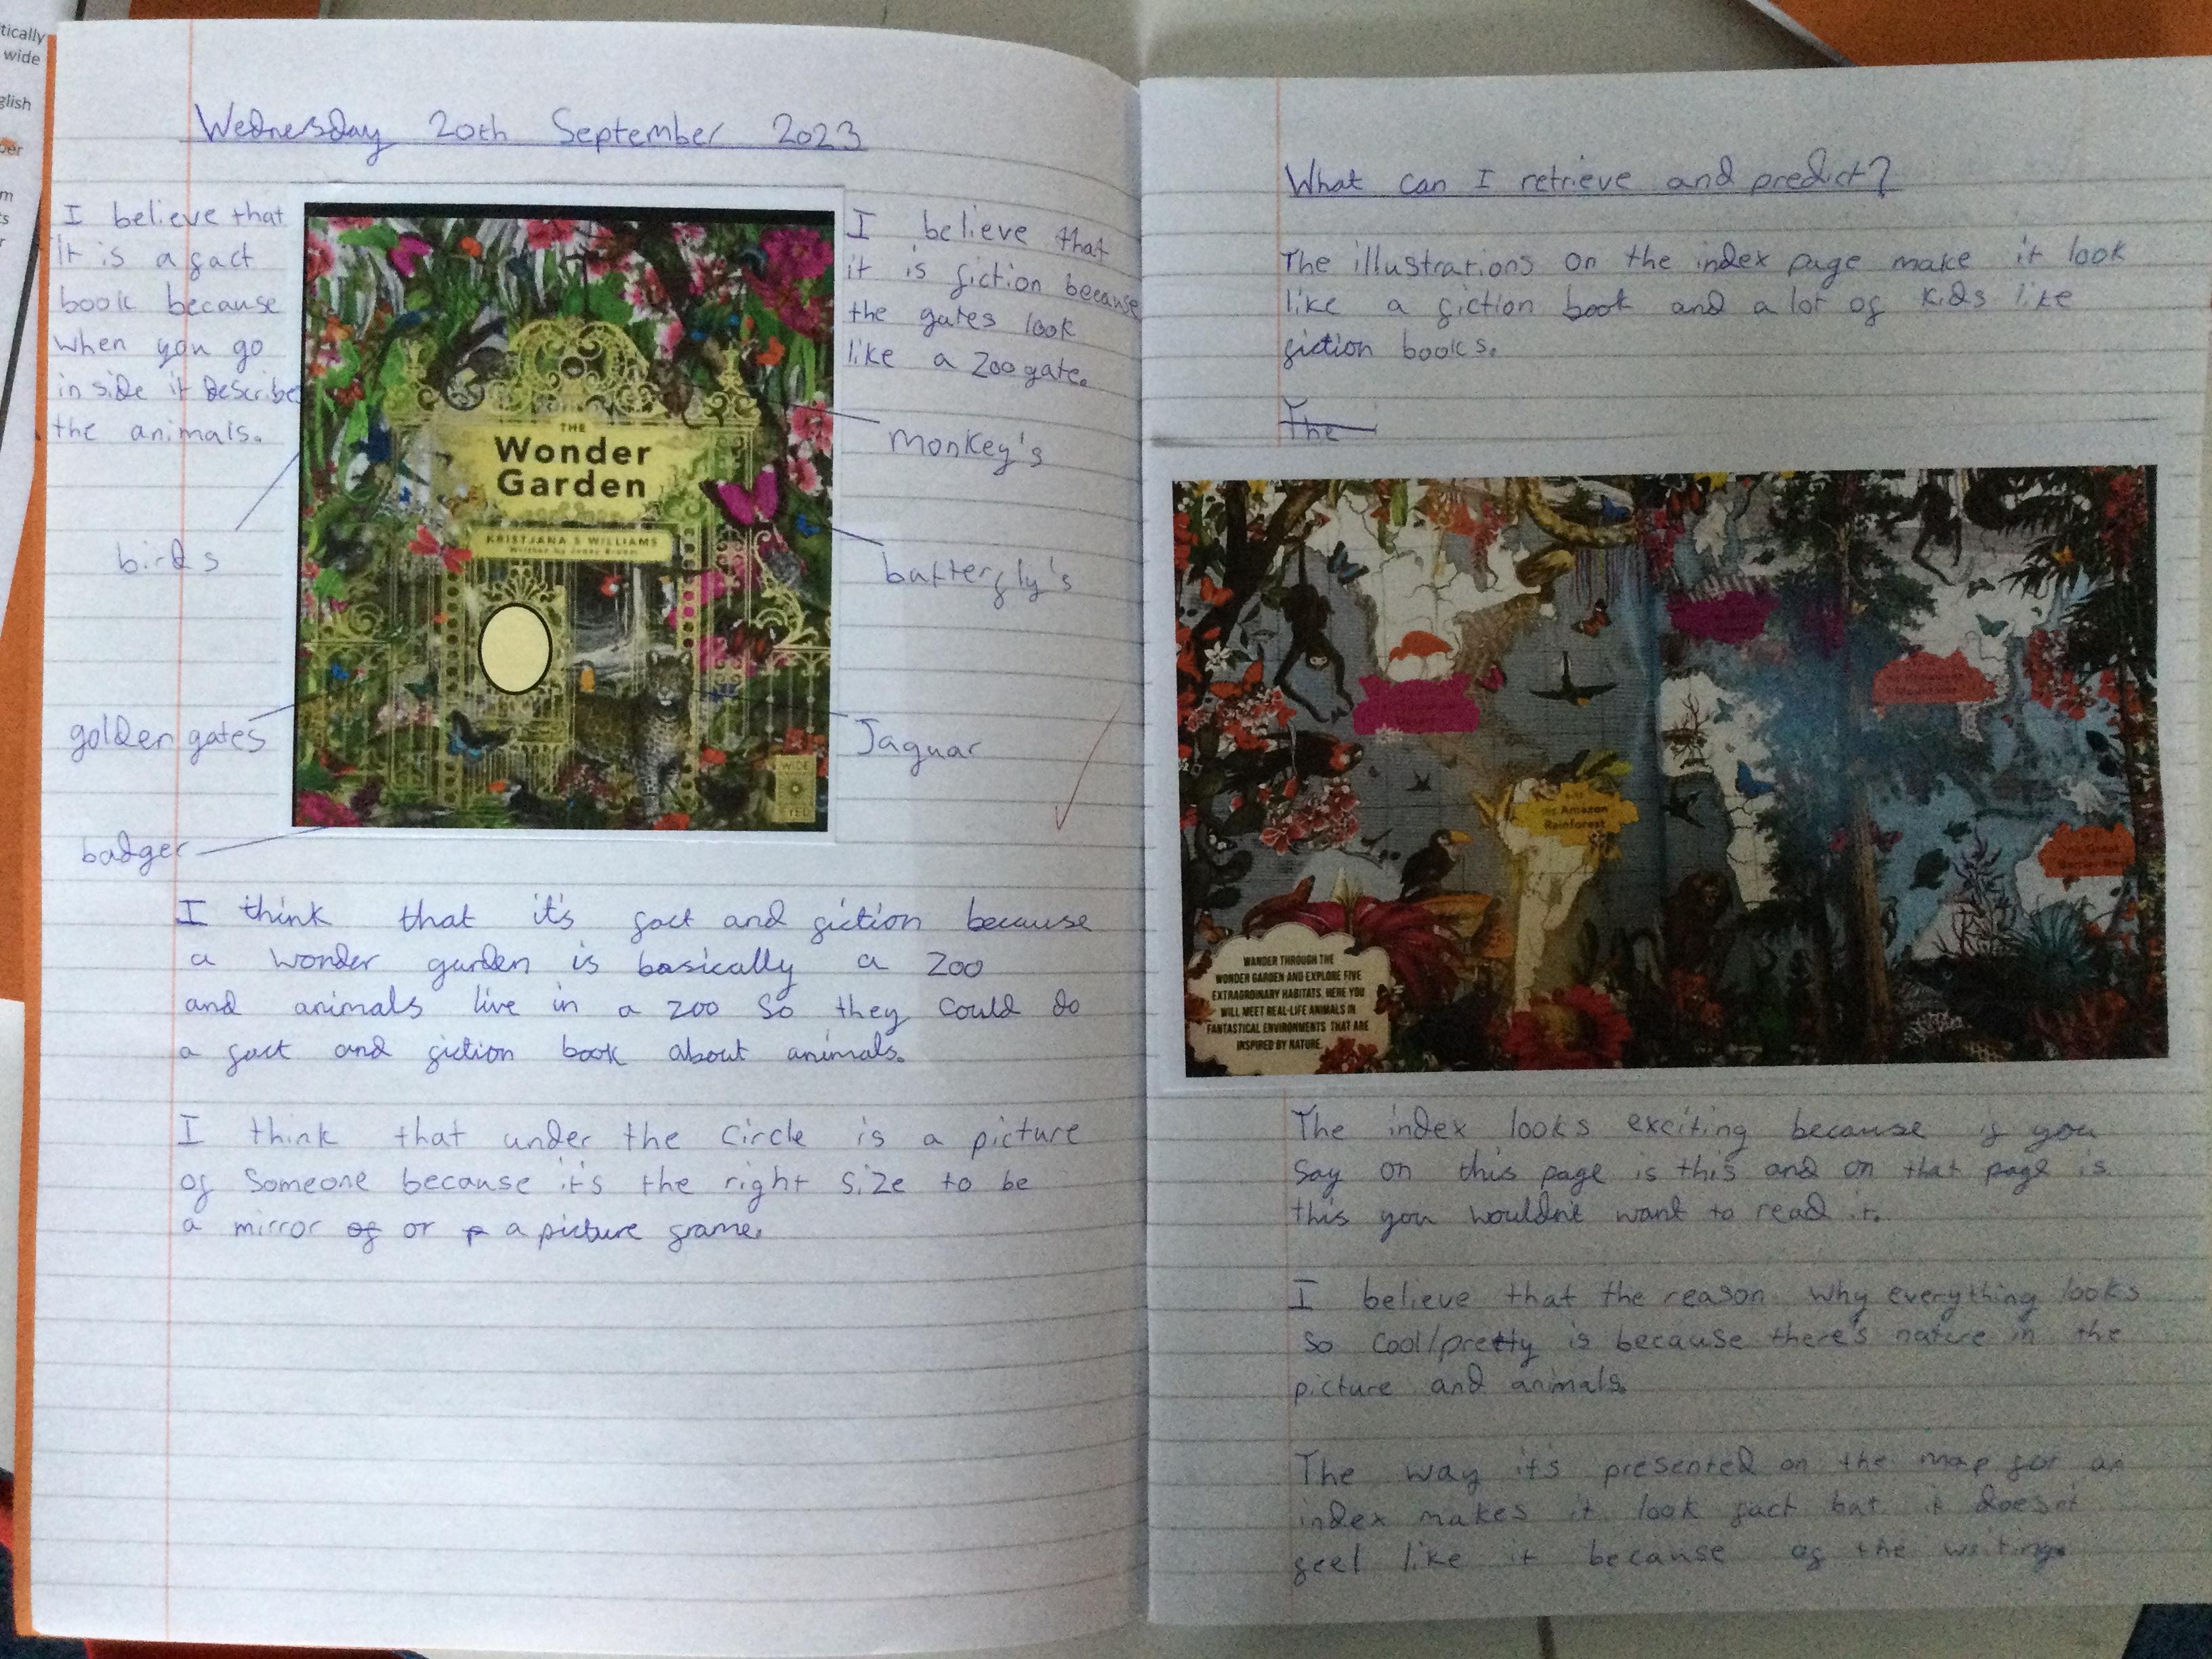 tically
wide
glish
ber
m
ts
r
Wednesday 20th September 2023
I believe that
It is a fact
book because
when you go
in side it describes
the animals.
birds
golden gates
badger
THE
Wonder
Garden
KRISTJANA S WILLIAMS
Written by Jenny Broom
WIDE
EYED
I believe that
it is fiction because
the gates look
like a Zoo gate.
monkey's
butterfly's
Jaguar
I think that it's fact and fiction because
a wonder garden is basically a zoo
and animals live in a zoo so they could do
a fact and fiction book about animals.
I think that under the circle is a picture
of someone because it's the right size to be
a mirror of or p a picture frame.
What can I retrieve and predict?
The illustrations on the index page make it look
like a fiction book and a lot of kids like
fiction books.
The
the Amazon
Rainforest
The Great
Barrier Reef
WANDER THROUGH THE
WONDER GARDEN AND EXPLORE FIVE
EXTRAORDINARY HABITATS. HERE YOU
WILL MEET REAL-LIFE ANIMALS IN
FANTASTICAL ENVIRONMENTS THAT ARE
INSPIRED BY NATURE.
The index looks exciting because if you
say on this page is this and on that page is
this you wouldn't want to read it.
I believe that the reason why everything looks
so cool/pretty is because there's nature in the
picture and animals.
The way it's presented on the map for an
index makes it look fact but it doesn't
feel like it because of the writing.